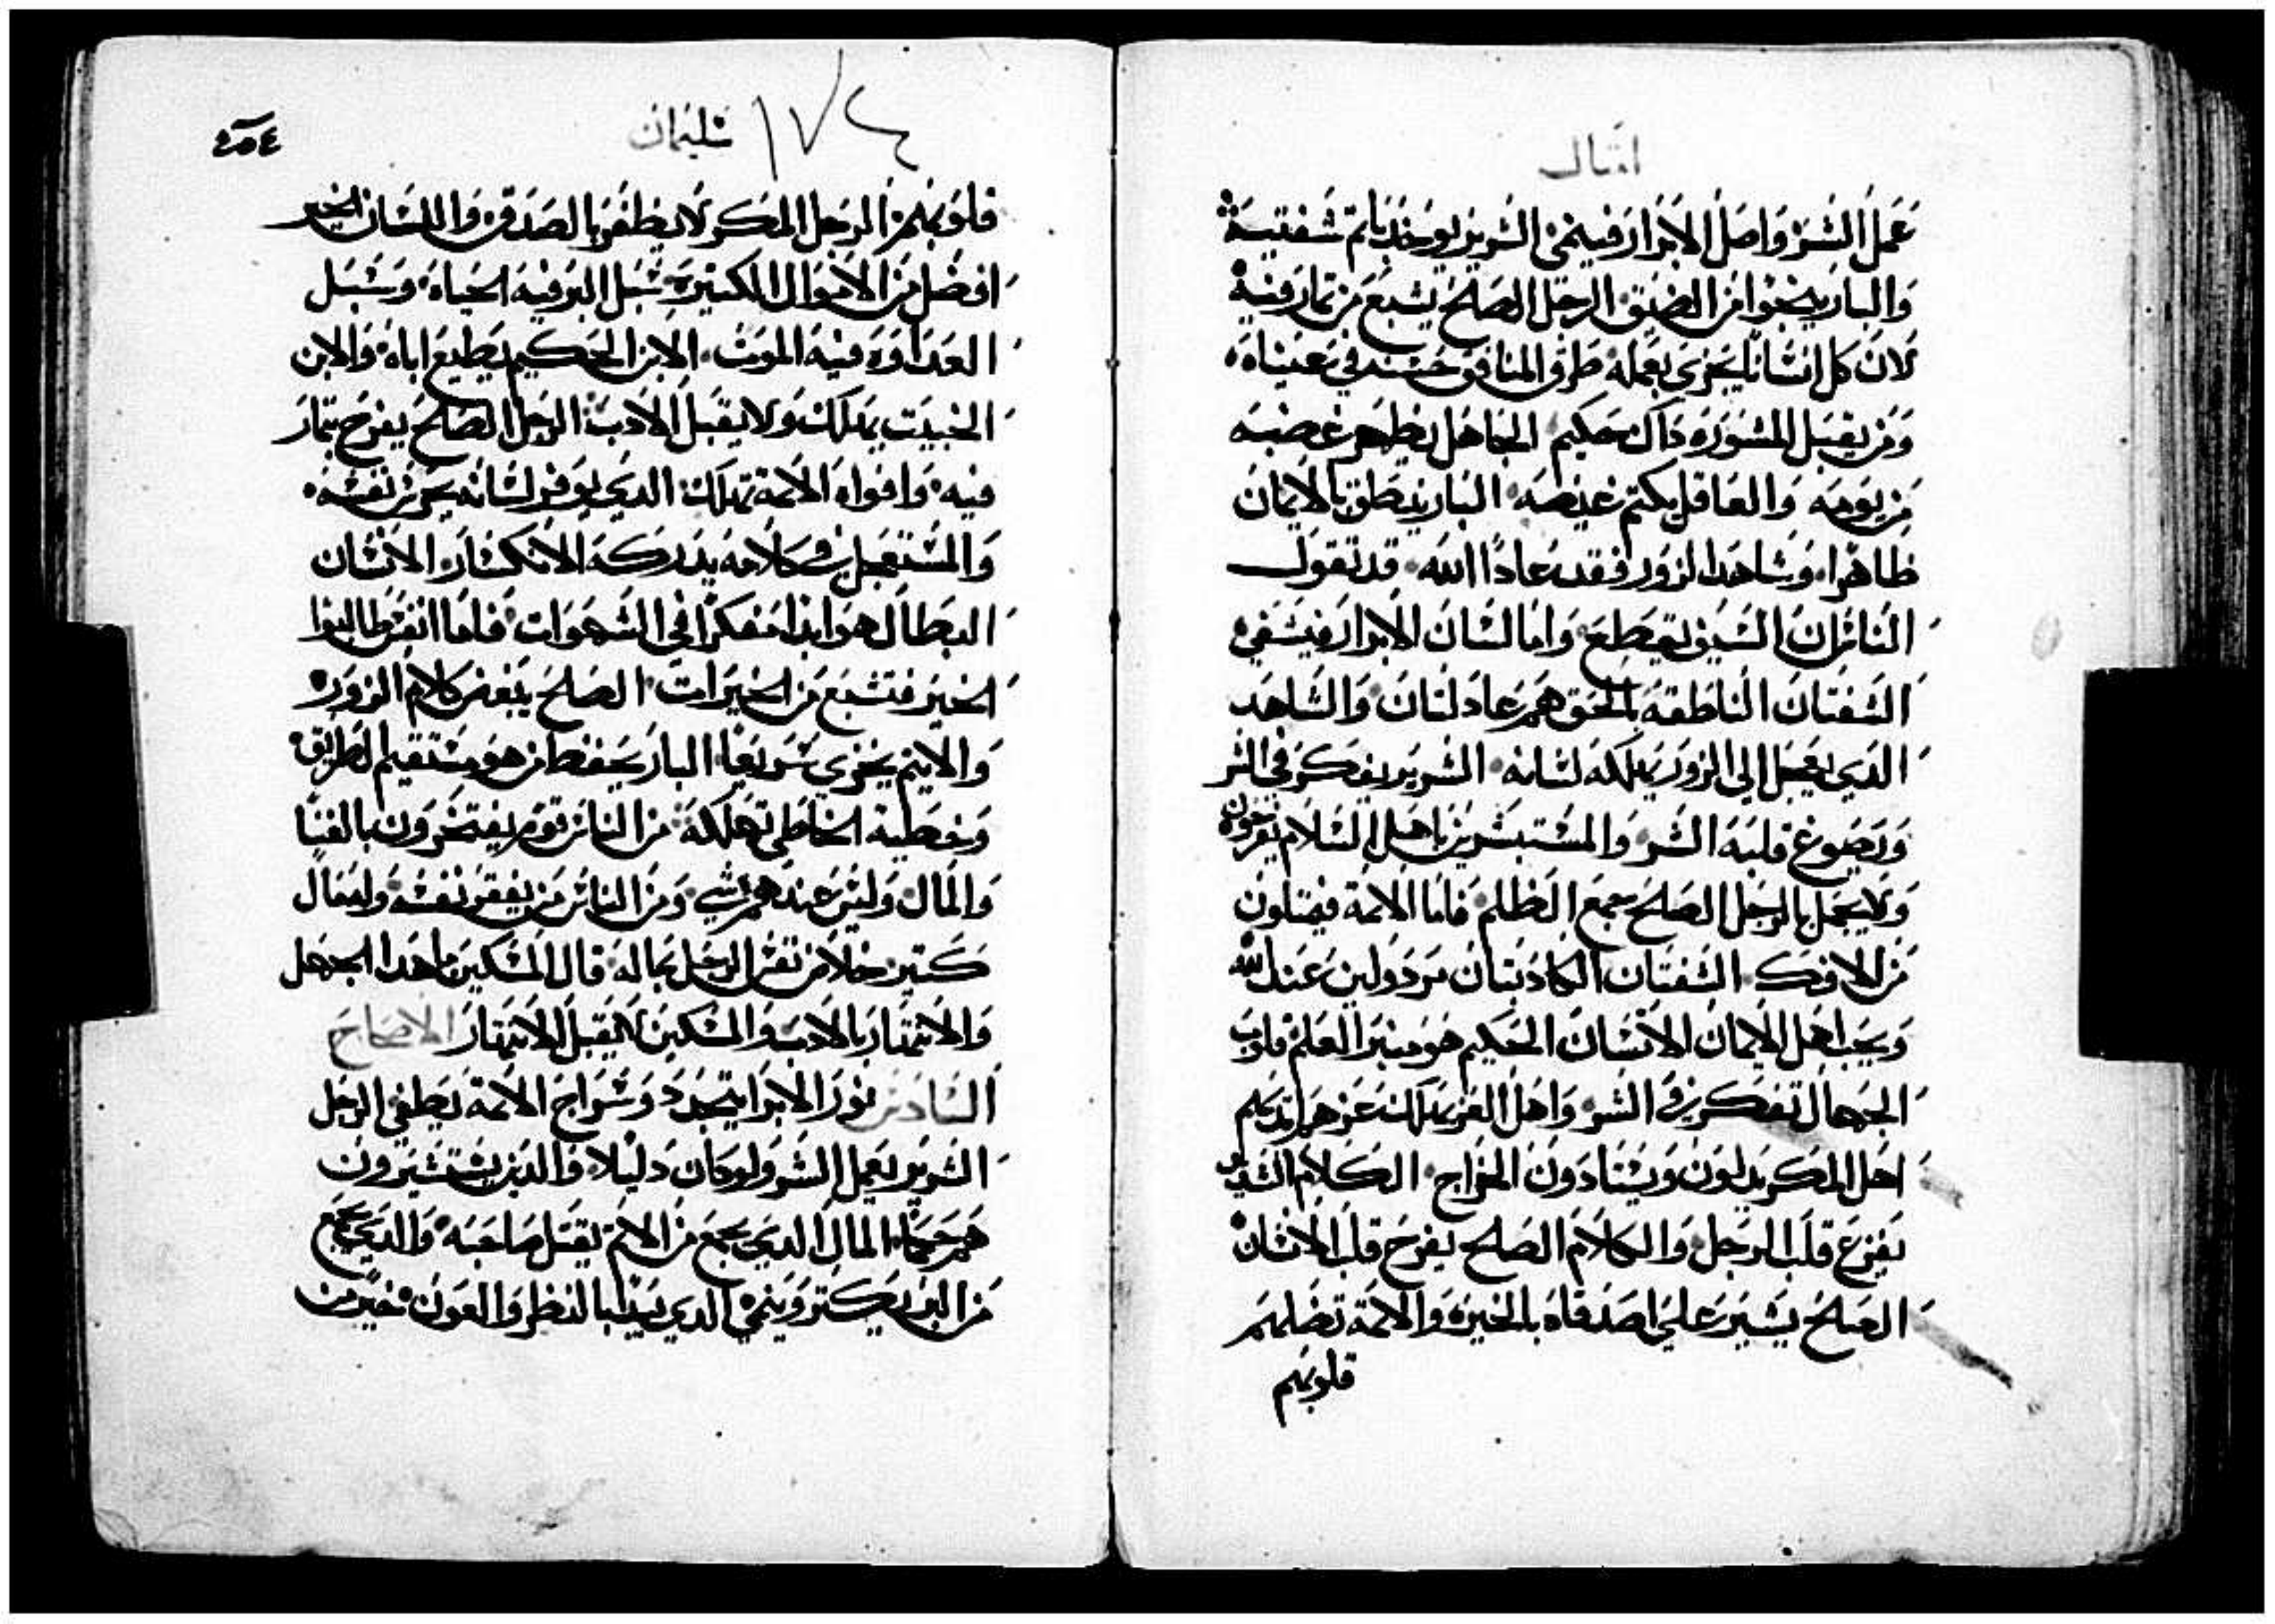 امثال
عمل الشر واصل الابرار فينمي الشرير يوخذ باثم شفتيه
والبار ينجوا من الضيق الرجل الصالح يشبع من ثمار فيه
لان كل انسانا يجزي بعمله طرق المنافق حسنه في عيناه
ومن يقبل المشوره ذاك حكيم الجاهل يظهر غضبه
من يومه والعاقل يكتم غيضه البار ينطق بالايمان
ظاهرا وشاهد الزور فقد عادا الله قد تقول
الناس ان السيف يقطع واما لسان الابرار فيشفي
الشفتان الناطقه بالحق هم عادلتان والشاهد
الدي يعجل الي الزور يهلكه لسانه الشرير يفكر في الشر
ويصوغ قلبه الشر والمستبشرين باهل السلام يفرحون
ولا يجمل بالرجل الصالح جمع الظلم فاما الاثمة فيمتلون
من الافك الشفتان الكادبتان مردولين عند الله
ويحب اهل الايمان الانسان الحكيم هو منبر العلم قلوب
الجهال تفكر في الشر واهل العز يهلك عزهم ايديهم
اهل المكر يدلون ويتادون الخراج الكلام الشديد
يفزع قلب الرجل والكلام الصالح يفرح قلب الانسان
الصالح يشير علي اصدقاه بالخيره والاثمة تضلهم
قلوبهم
٤٥٤
١٧٤
سليمان
قلوبهم الرجل المكر لا يظفر بالصدق واللسان الخير
افضل من الاموال الكثيرة سبل البر فيه الحياه وسبل
العداوه فيه الموت الابن الحكيم يطيع اباه والابن
الخبيت يهلك ولا يقبل الادب الرجل الصالح يفرح بتمار
فيه وافواه الاثمة تهلك الدي يوقر لسانه يحرس نفسه
والمستعجل في كلامه يدركه الانكسار الانسان
البطال هو ابدا مفكرا في الشهوات فاما انفس طالبوا
الخير فتشبع من الخيرات الصالح يبغض كلام الزور
والاثيم يخزي سريعا البار يحفظ من هو مستقيم الطريق
وخطية الخاطي تهلكه من الناس قوم يفتخرون بالغنا
والمال وليس عندهم شي ومن الناس من يفقر نفسه وله مال
كتير خلاص نفس الرجل بماله قال المسكين ما هدا الجهل
والانتهار بالادب والمسكين لا يقبل الانتهار الاصحاح
السادس نور الابرا يتجدد وسراج الاثمة يطفي الرجل
الشرير يعمل الشر ولو كان دليلا والدين يستشيرون
هم حكما المال الدي يجمع من الاثم يقتل صاحبه والدي يجمع
من البر يكتر وينمي الدي يبدا بالنظر والعون خير من